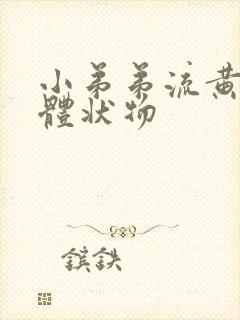 小弟弟流黄
體狀物
鑌鉄